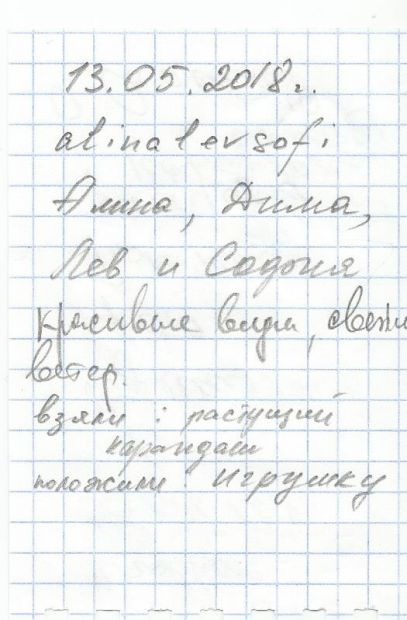 13.05.2018г.
alinalevsofi
Алина, Дима,
Лев и Софья
красивые виды, свежи
ветер.
взяли: растущий
карандаш
положили: игрушку